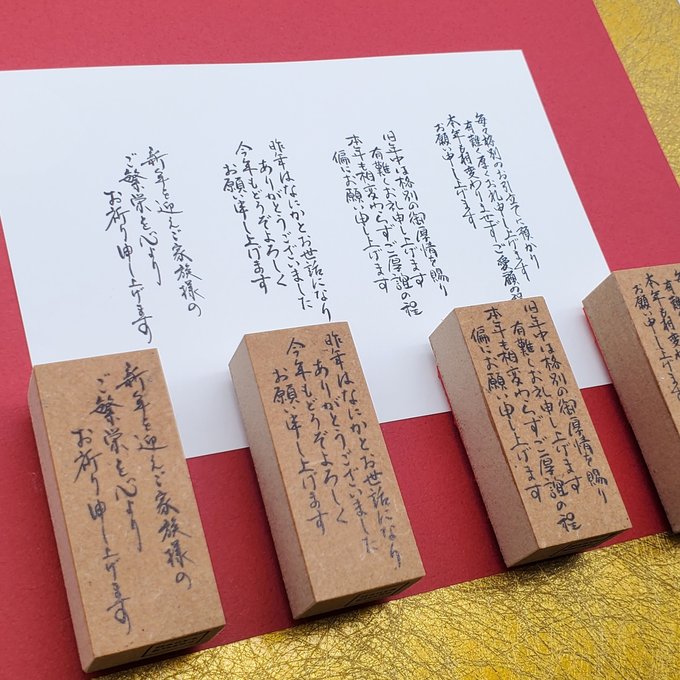 毎々格別のお引立てに預かり
有難く厚くお礼申し上げます
本年も相変わりませずご愛顧の程
お願い申し上げます
旧年中は格別の御厚情を賜り
有難くお礼申し上げます
本年も相変わらずご厚誼の程
偏にお願い申し上げます
昨年はなにかとお世話になり
ありがとうございました
今年もどうぞよろしく
お願い申し上げます
新年を迎えご家族様の
ご繁栄を心より
お祈り申し上げます
有難く厚く
本年も相変わりませ
お願い申し上げます
旧年中は格別の御厚情を賜り
有難くお礼申し上げます
本年も相変わらずご厚誼の程
偏にお願い申し上げます
昨年はなにかとお世話になり
ありがとうございました
今年もどうぞよろしく
お願い申し上げます
新年を迎えご家族様の
ご繁栄を心より
お祈り申し上げます